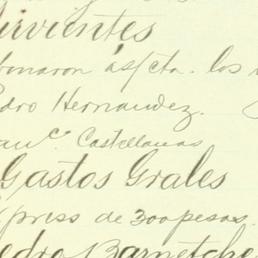 irvientes
onaron a s/cta. los
dro Hernandez.
an co. Castellanas
Gastos Grales
press de 300 pesos.
edro Barnetche